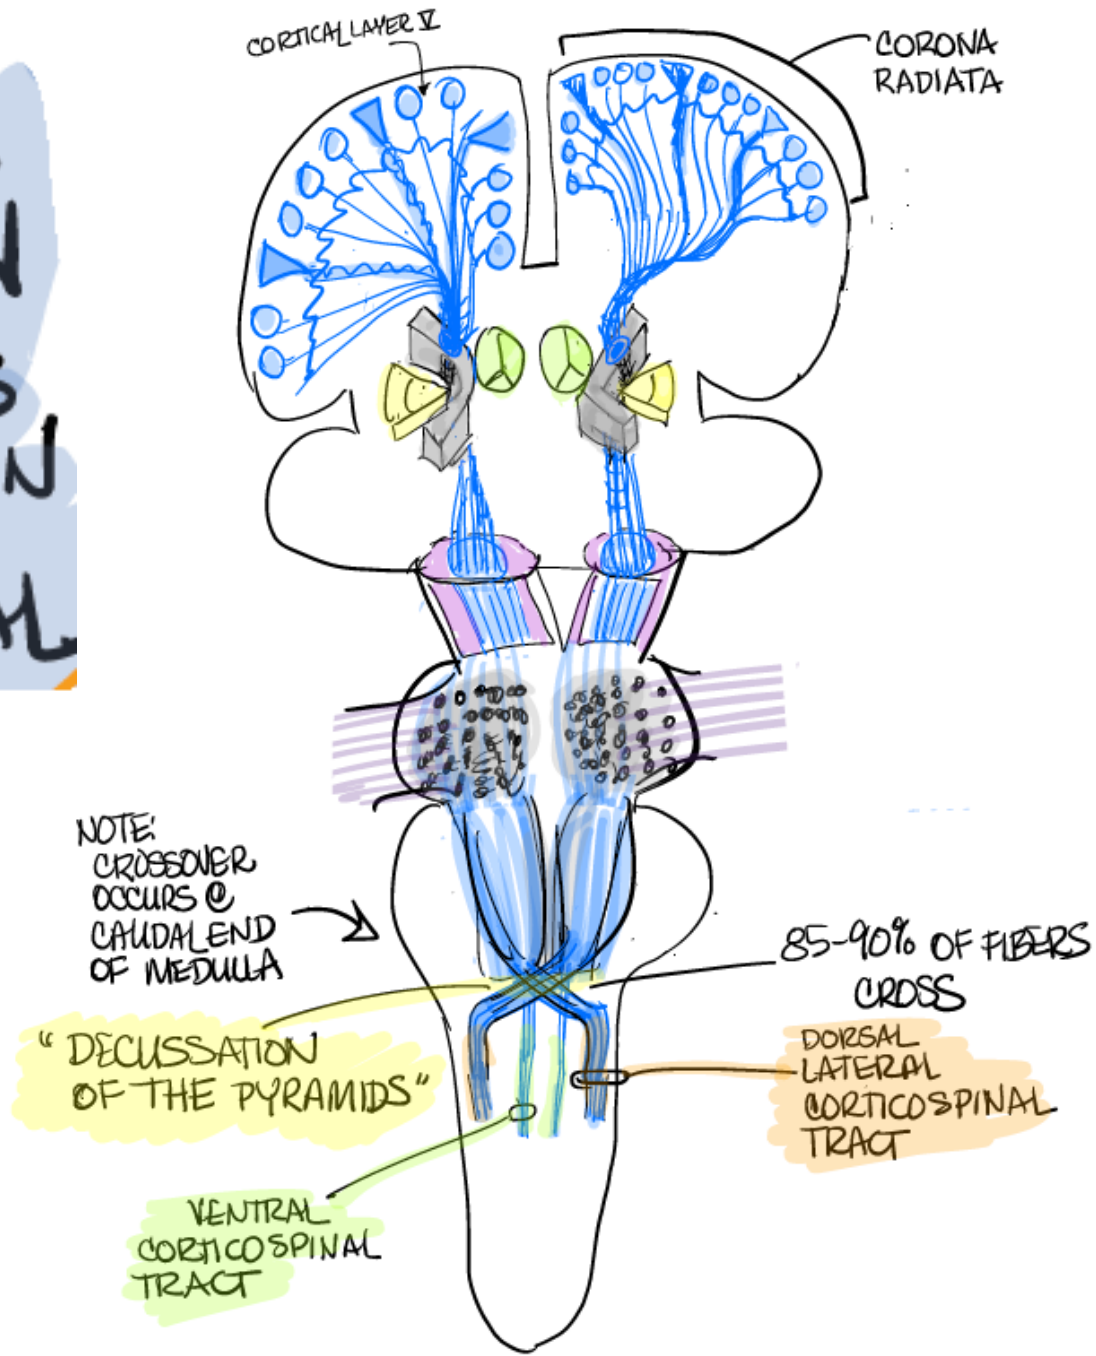 CORTICAL LAYER V
CORONA
RADIATA
NOTE:
CROSSOVER
OCCURS @
CAUDAL END
OF MEDULLA
85-90% OF FIBERS
CROSS
"DECUSSATION
OF THE PYRAMIDS"
DORSAL
LATERAL
CORTICOSPINAL
TRACT
VENTRAL
CORTICOSPINAL
TRACT